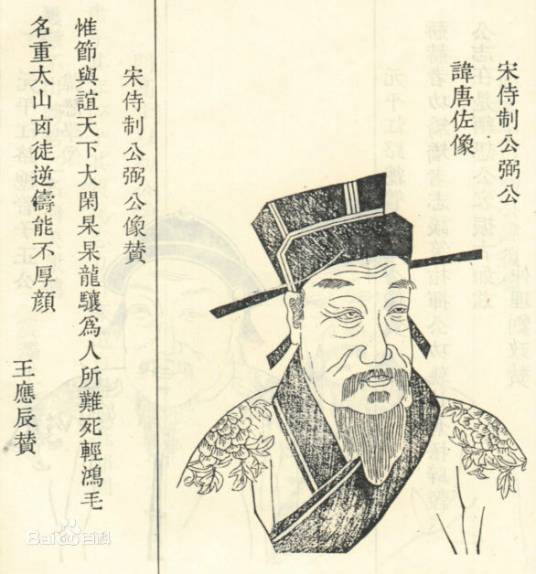 宋侍制公弼公
諱唐佐像
宋侍制公弼公像賛
惟節與誼天下大閑杲杲龍驤爲人所難死輕鴻毛
名重太山卤徒逆儔能不厚顔
王應辰賛
Bai百科